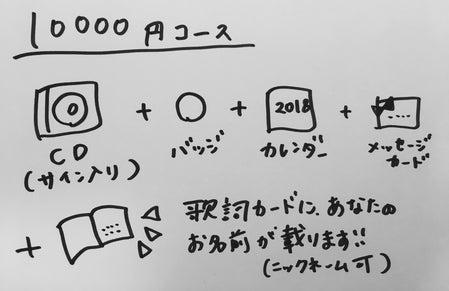 10000円コース
+ + 2018 +
CD バッジ カレンダー メッセージ
(サイン入り) カード
+ 歌詞カードに、あなたの
お名前が載ります!!
(ニックネーム可)